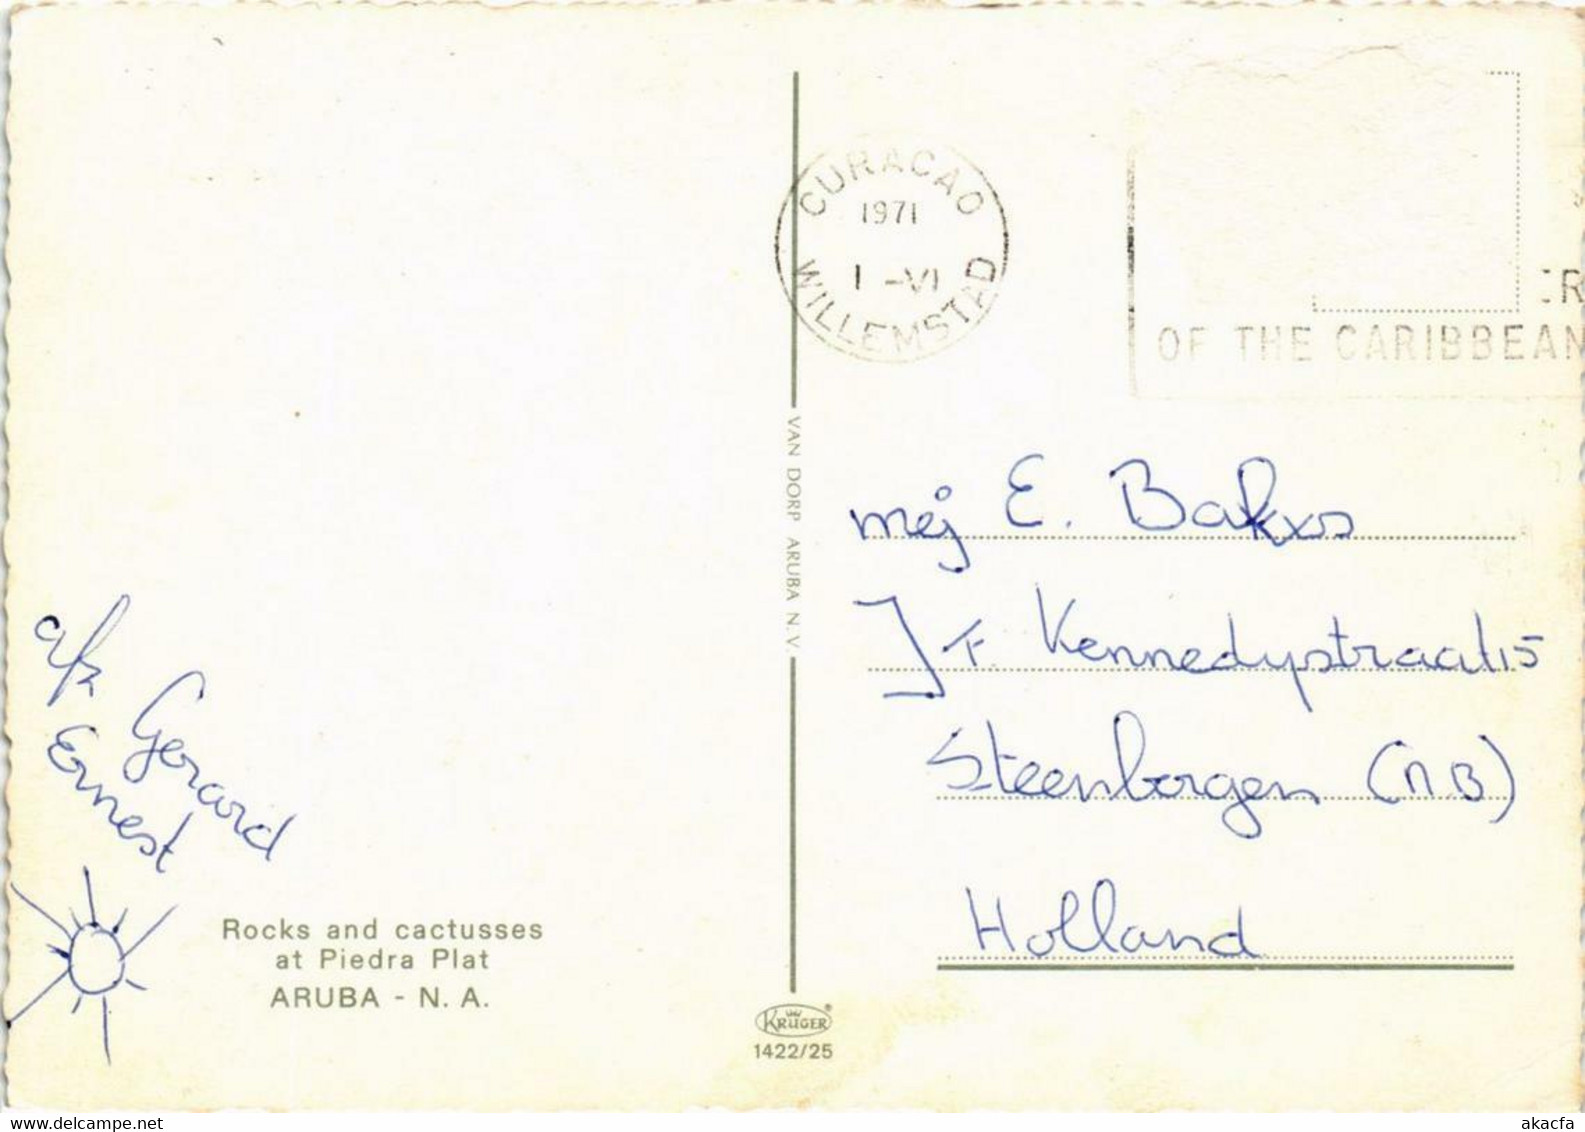 CURACAO
1971
1 -VI
WILLEMSTAD
OF THE CARIBBEAN
VAN DORP ARUBA N.V.
mej E. Bakxs
J F. Kennedystraat 15
Steenbergen (N.B)
Holland
afz Gerard
Ernest
Rocks and cactusses
at Piedra Plat
ARUBA - N. A.
KRÜGER®
1422/25
www.delcampe.net
akacfa